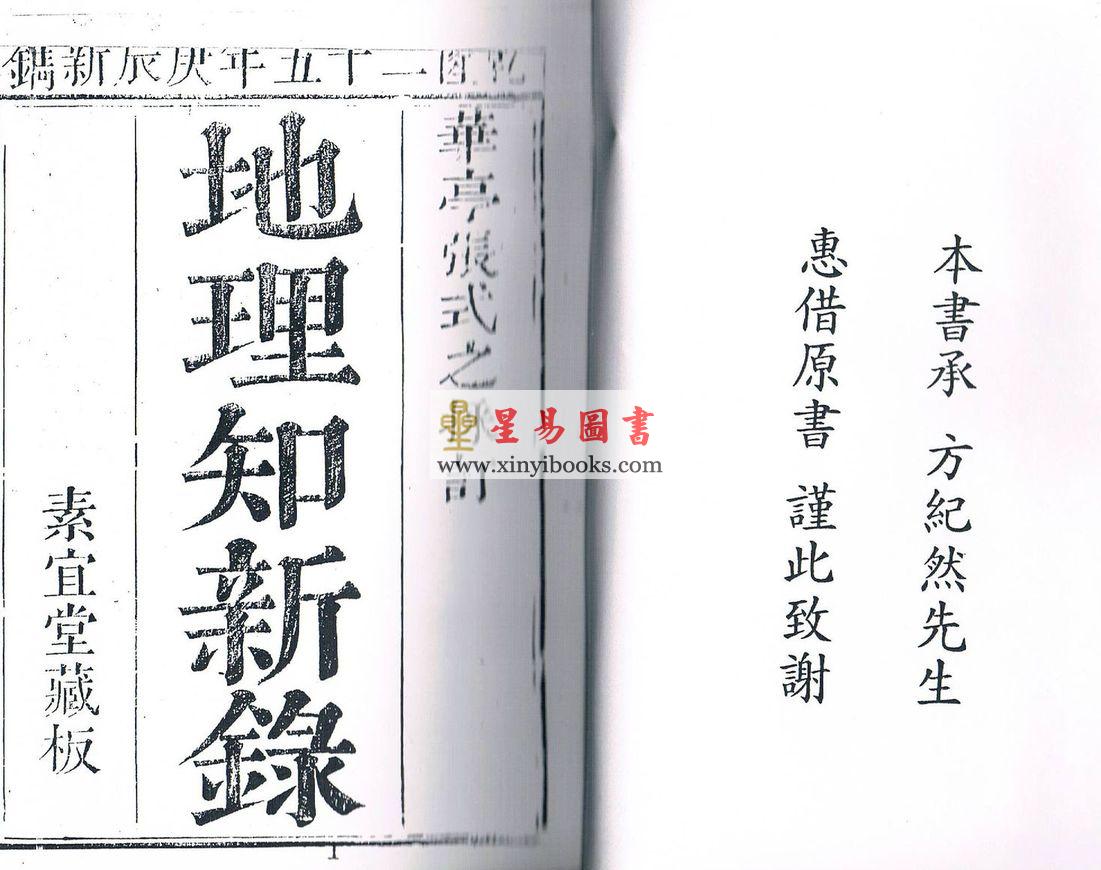 本書承 方紀然先生
惠借原書 謹此致謝
二十五年庚辰新鐫
華亭張式之
地理知新錄
素宜堂藏板
1
星易圖書
www.xinyibooks.com